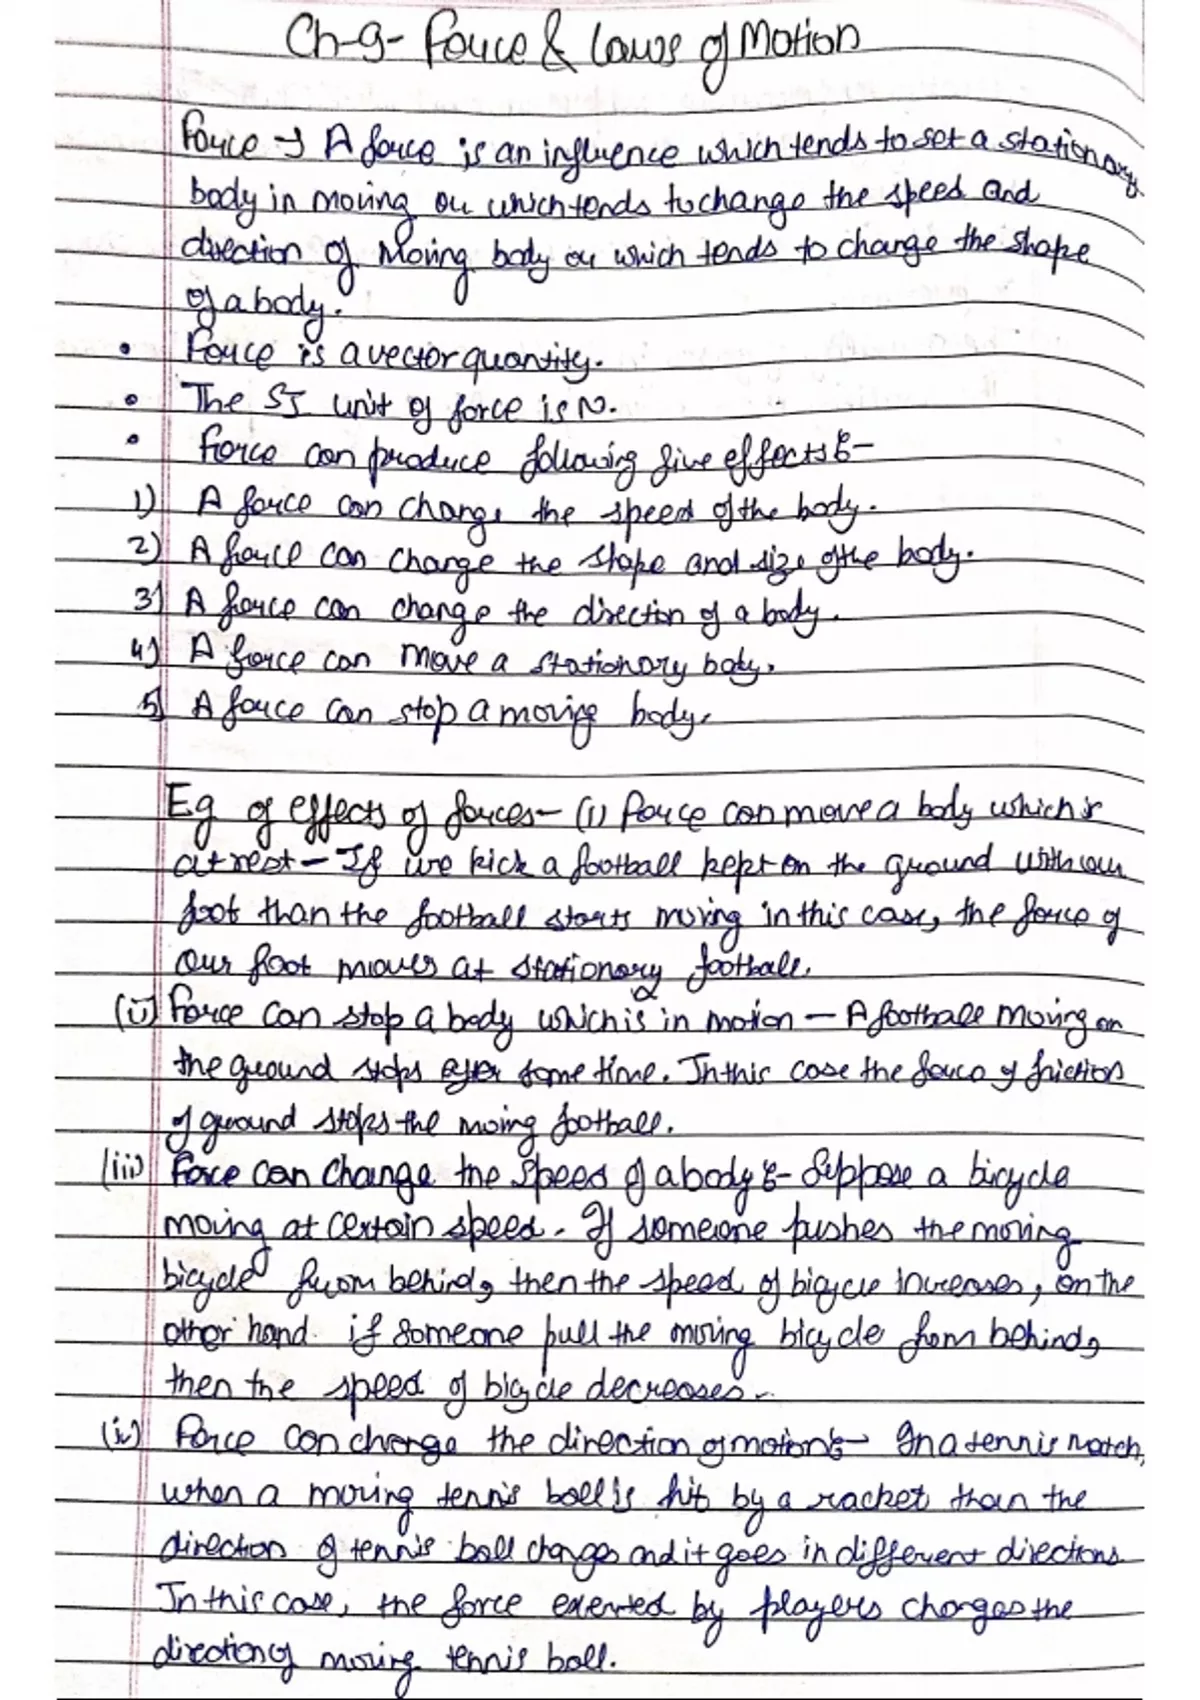 Ch-9- Force & Laws of Motion
Force → A force is an influence which tends to set a stationary
body in moving or which tends to change the speed and
direction of moving body or which tends to change the shape
of a body.
• Force is a vector quantity.
• The SI unit of force is N.
• Force can produce following five effects:-
1) A force can change the speed of the body.
2) A force can change the shape and size of the body.
3) A force can change the direction of a body.
4) A force can move a stationary body.
5) A force can stop a moving body.
Eg of effects of forces- (i) Force can move a body which is
at rest - If we kick a football kept on the ground with our
foot than the football starts moving in this case, the force of
our foot moves at stationary football.
(ii) Force can stop a body which is in motion - A football moving on
the ground stops after some time. In this case the force of friction
of ground stops the moving football.
(iii) Force can change the speed of a body:- Suppose a bicycle
moving at certain speed. If someone pushes the moving
bicycle from behind, then the speed of bicycle increases, on the
other hand if someone pull the moving bicycle from behind,
then the speed of bicycle decreases.
(iv) Force can change the direction of motion:- In a tennis match,
when a moving tennis ball is hit by a racket than the
direction of tennis ball changes and it goes in different directions
In this case, the force exerted by players changes the
direction of moving tennis ball.